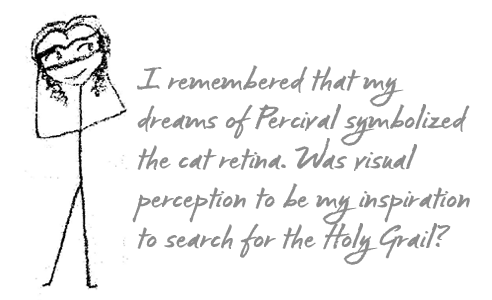 I remembered that my
dreams of Percival symbolized
the cat retina. Was visual
perception to be my inspiration
to search for the Holy Grail?